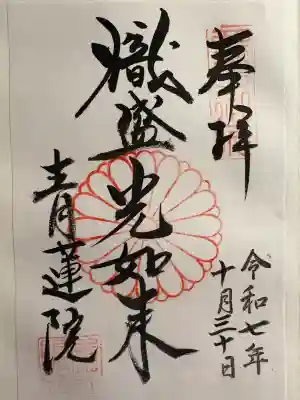 奉拝
令和七年
十月三十日
熾盛光如来
青蓮院